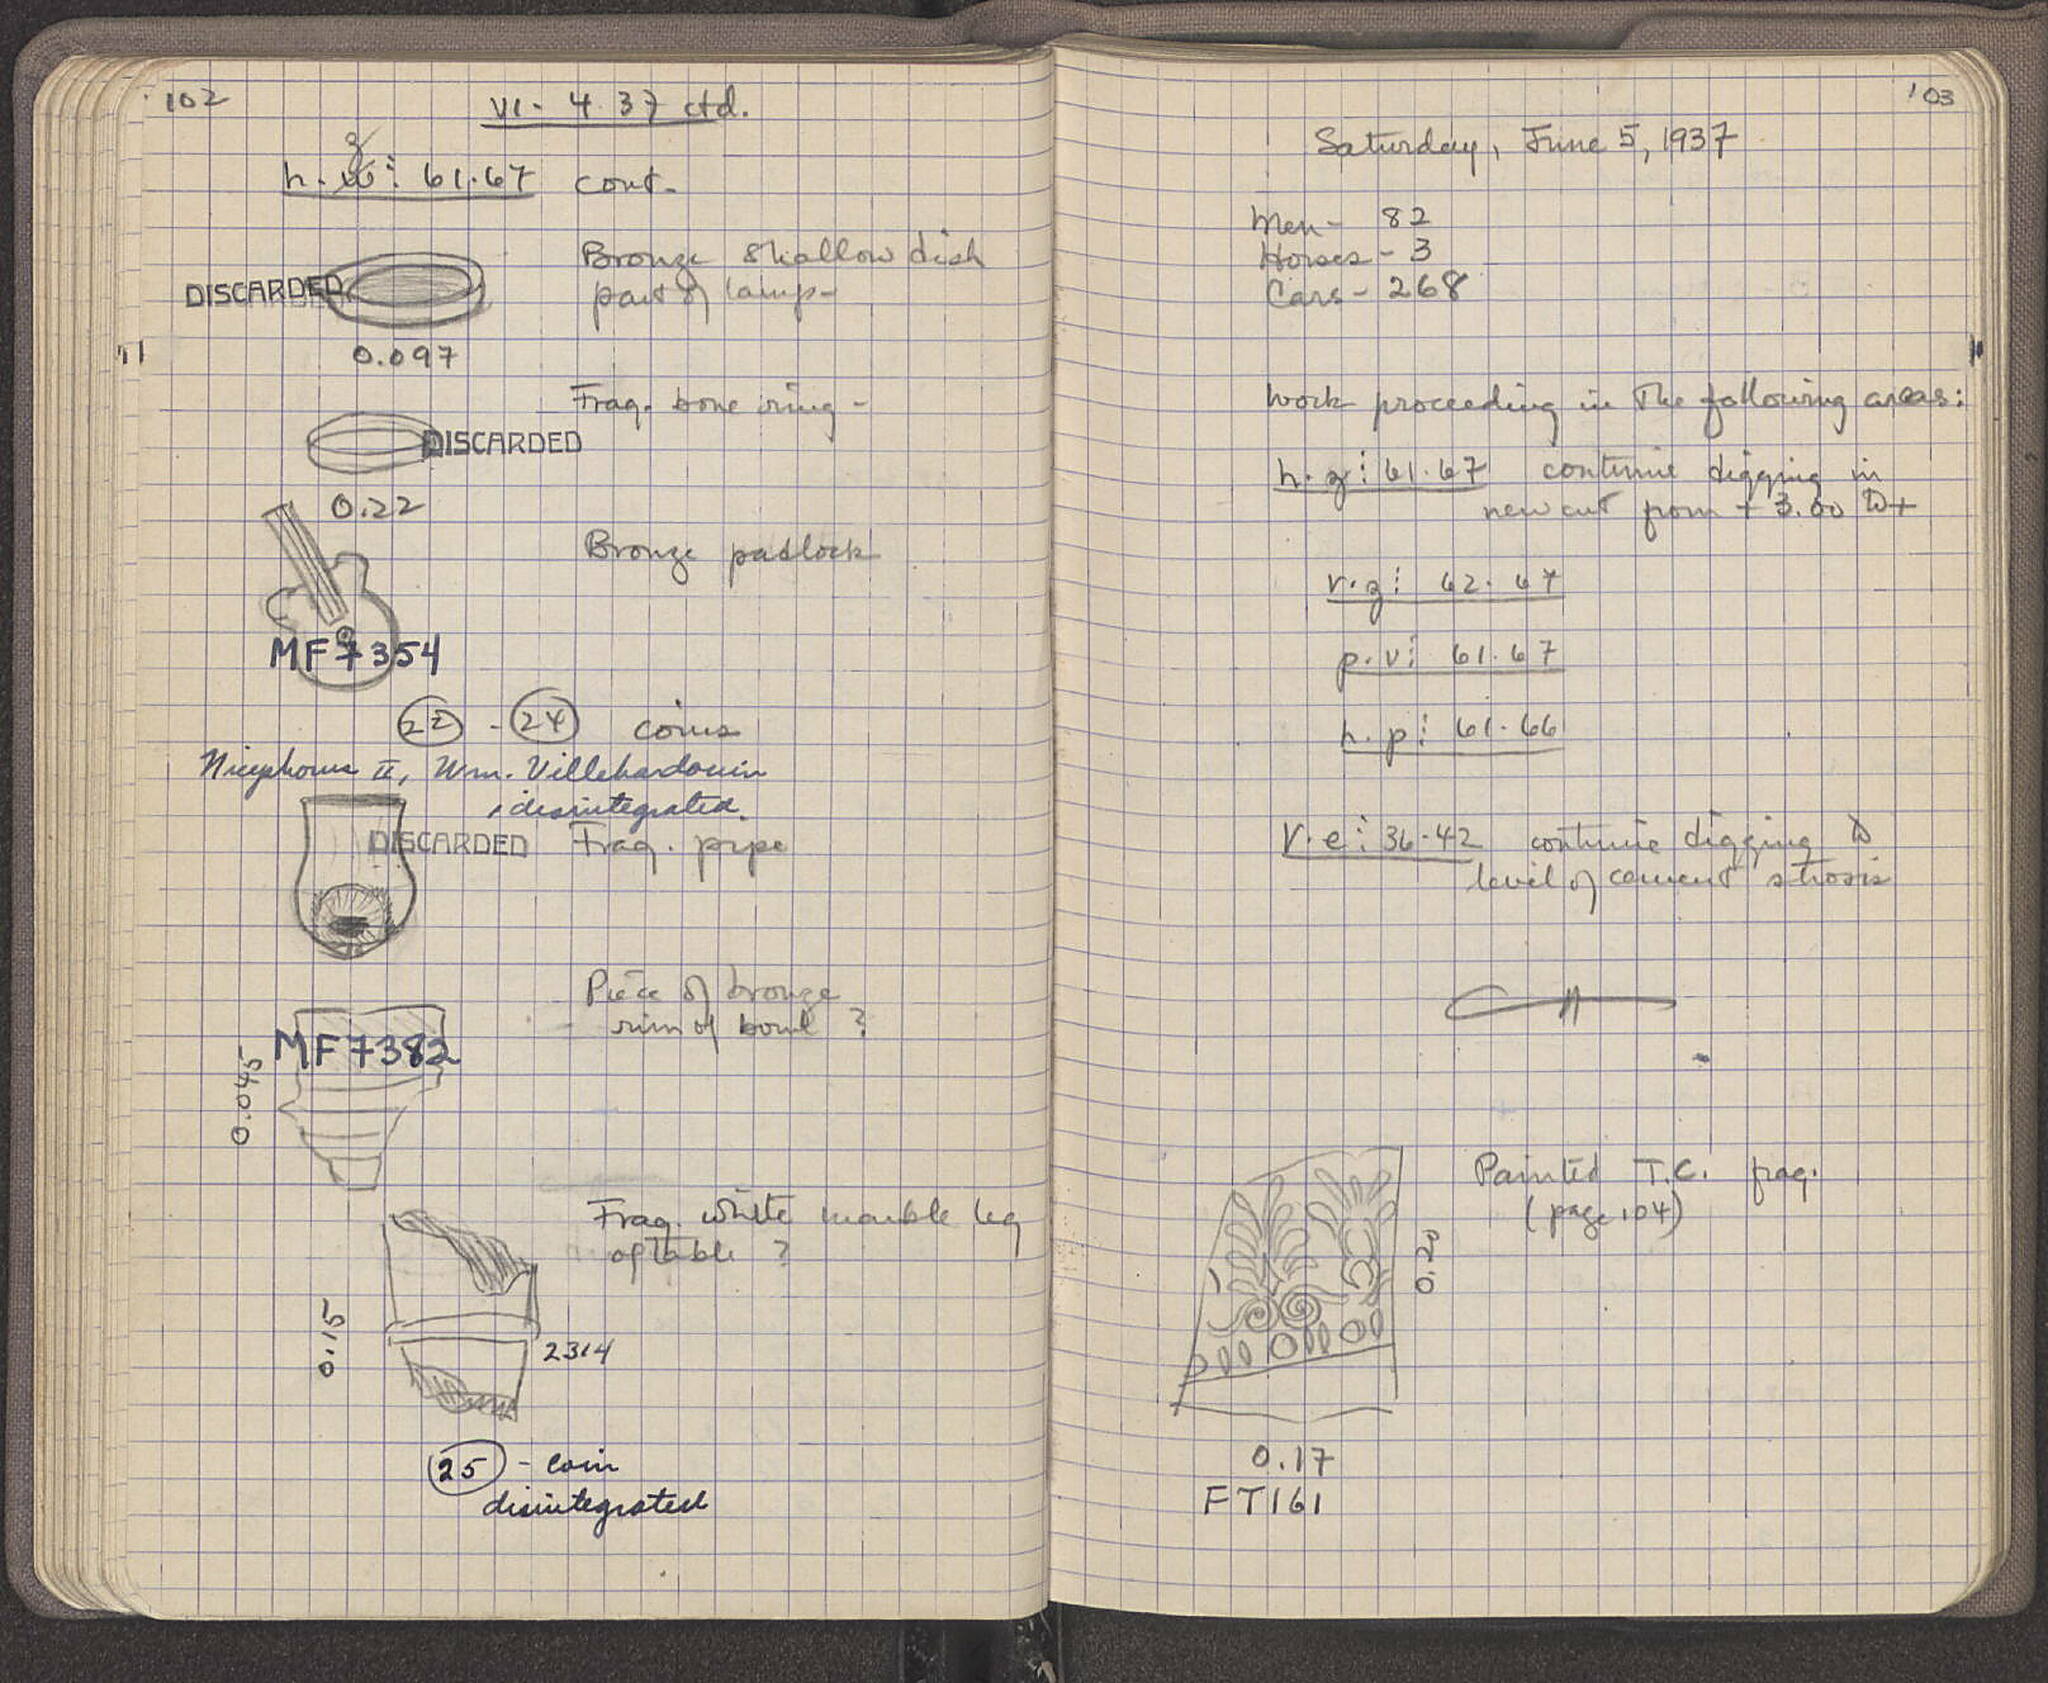 102
VI- 4 37 ctd.
z
h. w⋮ 61.67 cont-
Bronze shallow dish
DISCARDED part of lamp-
0.097
Frag. bone ring -
DISCARDED
0.22
Bronze padlock
MF 7354
22 - 24 coins
Nicephorus II, Wm. Villehardouin
, disintegrated.
DISCARDED Frag. pipe
Piece of bronze
rim of bowl ?
MF 7382
0.045
Frag. white marble leg
of table ?
0.15
2314
25 - coin
disintegrated
103
Saturday, June 5, 1937
Men - 82
Horses - 3
Cars - 268
Work proceeding in the following areas:
h. z⋮ 61.67 continue digging in
new cut from + 3.00 to +
v.z⋮ 62.67
p.v⋮ 61.67
h.p⋮ 61.66
V.e⋮ 36-42 continue digging to
level of cement strosis
Painted T.C. frag.
(page 104)
0.20
0.17
FT161